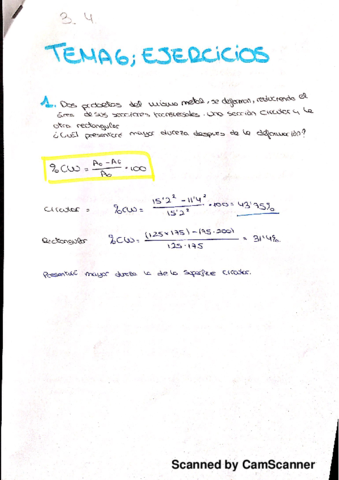 3. 4
TEMA 6; EJERCICIOS
1. Dos probetas del mismo metal, se deforman, reduciendo el
área de sus secciones transversales. Una sección circular y la
otra rectangular
¿Cuál presentará mayor dureza después de la deformación?
%CW = A₀ - Af / A₀ · 100
Circular = %CW = 15'2² - 11'4² / 15'2² · 100 = 43'75%
Rectangular %CW = (125 x 175) - (75 · 200) / 125 · 175 = 31'4%
Presentará mayor dureza la de la superficie circular.
Scanned by CamScanner